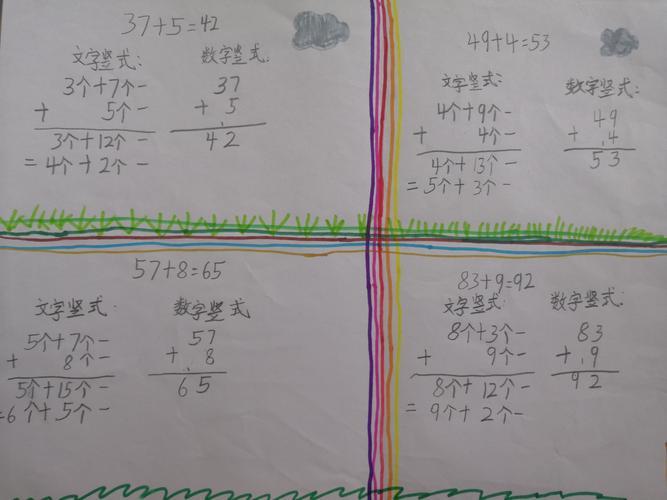 37+5=42
文字竖式: 数字竖式:
3个+7个一 37
+ 5个一 + 5
3个+12个一 42
=4个+2个一
49+4=53
文字竖式: 数字竖式:
4个+9个一 49
+ 4个一 + 4
4个+13个一 53
=5个+3个一
57+8=65
文字竖式: 数字竖式
5个+7个一 57
+ 8个一 + 8
5个+15个一 65
=6个+5个一
83+9=92
文字竖式: 数字竖式:
8个+3个一 83
+ 9个一 + 9
8个+12个一 92
= 9个+2个一